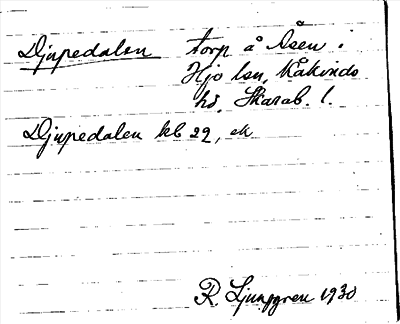 Djupedalen torp å Åsen.
Hjo lsn, Kåkinds
hd, Skarab. l.
Djupedalen kb 22, ek
R. Ljunggren 1930